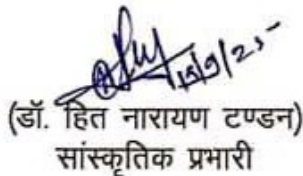 15/9/25
(डॉ. हित नारायण टण्डन)
सांस्कृतिक प्रभारी